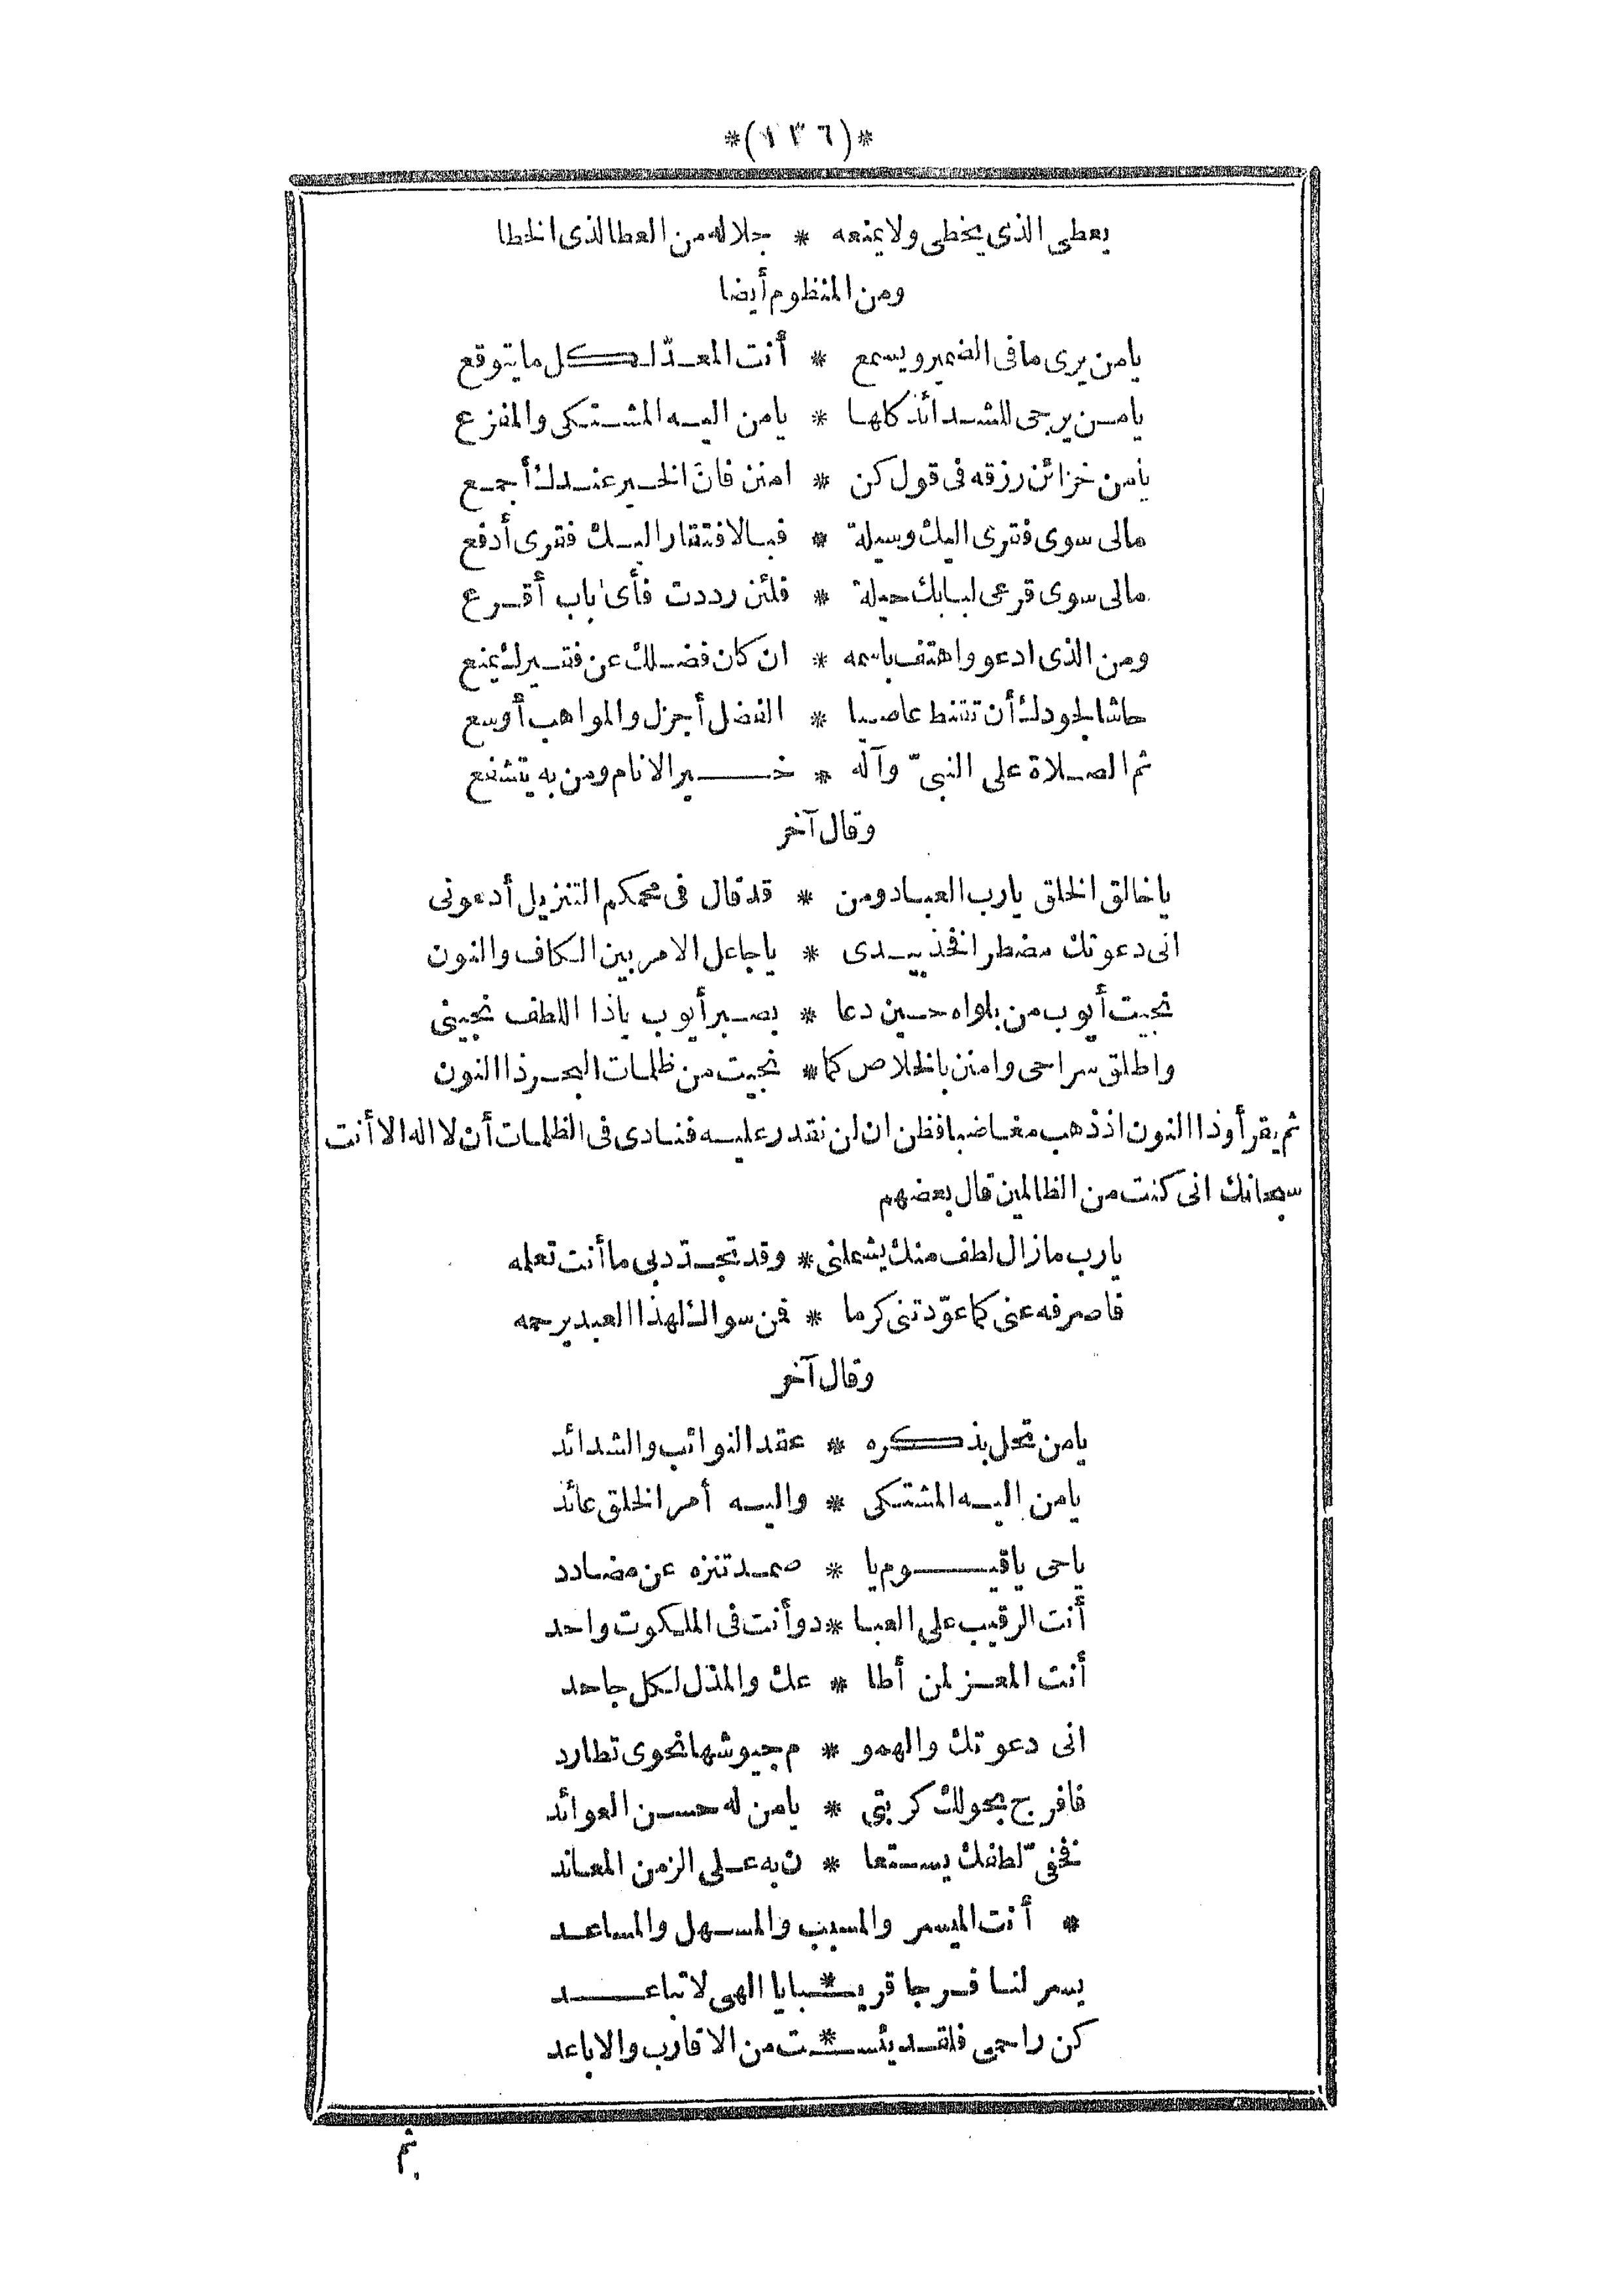 *(١٣٦)*
يعطى الذى يخطى ولا يمنعه * جلاله من العطا لذى الخطا
ومن المنظوم أيضا
يامن يرى مافى الضمير ويسمع * أنت المعدّ لكل ما يتوقع
يامن يرجى للشدائد كلها * يامن اليه المشتكى والمفزع
يامن خزائن رزقه فى قول كن * امنن فان الخير عندك أجمع
مالى سوى فقرى اليك وسيلة * فبالافتقار اليك فقرى أدفع
مالى سوى قرعى لبابك حيلة * فلئن رددت فأى باب أقرع
ومن الذى ادعو واهتف باسمه * ان كان فضلك عن فقيرك يمنع
حاشا لجودك أن تقنط عاصيا * الفضل أجزل والمواهب أوسع
ثم الصلاة على النبىّ وآله * خير الانام ومن به يتشفع
وقال آخر
ياخالق الخلق يارب العباد ومن * قد قال فى محكم التنزيل أدعونى
انى دعوتك مضطرا فخذ بيدى * ياجاعل الامر بين الكاف والنون
نجيت أيوب من بلواه حين دعا * بصبر أيوب ياذا اللطف نجينى
واطلق سراحى وامنن بالخلاص كما * نجيت من ظلمات البحر ذا النون
ثم يقرأ وذا النون اذ ذهب مغاضبا فظن ان لن نقدر عليه فنادى فى الظلمات أن لا اله الا أنت
سبحانك انى كنت من الظالمين قال بعضهم
يارب مازال لطف منك يشملنى * وقد تجدّد بى ما أنت تعلمه
فاصرفه عنى كما عوّدتنى كرما * فمن سواك لهذا العبد يرحمه
وقال آخر
يامن تحل بذكره * عقد النوائب والشدائد
يامن اليه المشتكى * واليه أمر الخلق عائد
ياحى ياقيوم يا * صمد تنزه عن مضادد
أنت الرقيب على العبا * د وأنت فى الملكوت واحد
أنت المعز لمن أطا * عك والمذل لكل جاحد
انى دعوتك والهمو * م جيوشها نحوى تطارد
فافرج بحولك كربتى * يامن له حسن العوائد
فخفىّ لطفك يستعا * ن به على الزمن المعاند
* أنت الميسر والمسبب والمسهل والمساعد
يسر لنا فرجا قريـ*ـبا يا الهى لا تباعد
كن راحمى فلقد يئسـ*ـت من الاقارب والاباعد
ثم